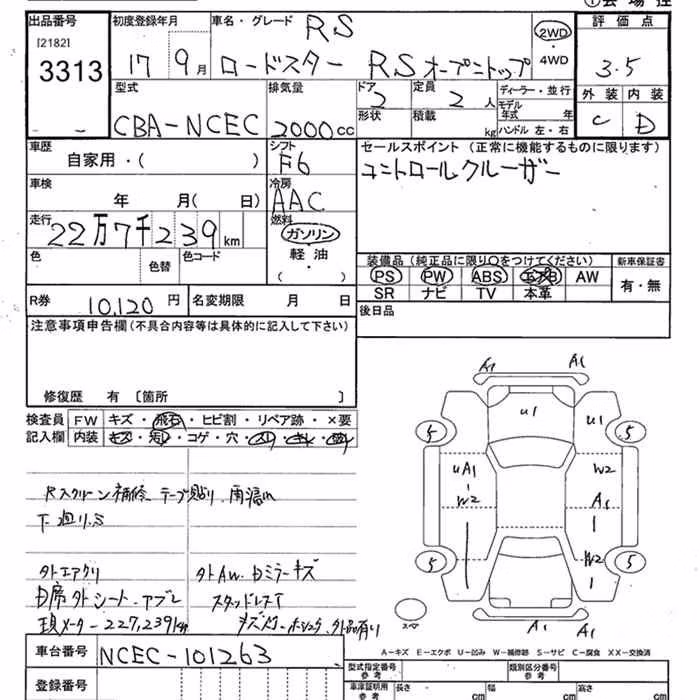 ①会場控
出品番号 初度登録年月 車名・グレード RS 2WD 評価点
[2182] 3313 17 9月 ロードスター RSオープントップ ・4WD 3.5
型式 排気量 ドア 2 定員 2人 ディーラー・並行 外装 内装
CBA-NCEC 2000cc 形状 積載 kg モデル年式 年 C D
ハンドル 左・右
車歴 シフト セールスポイント (正常に機能するものに限ります)
自家用・( ) F6 コントロールクルーザー
車検 冷房
年 月( 日) AAC
走行 燃料
22万7千239km ガソリン
色 色替 色コード 軽油 装備品 (純正品に限り○をつけてください) 新車保証書
・ PS PW ABS エアB AW 有・無
( ) SR ナビ TV 本革
R券 10,120円 名変期限 月 日 後日品
注意事項申告欄 (不具合内容等は具体的に記入して下さい)
修復歴 有 [箇所 ]
検査員 FW キズ・飛石・ヒビ割・リペア跡・×要
記入欄 内装 キズ・汚レ・コゲ・穴・スレ・
A1 A1
U1 U1
5 5
UA1 W2
W2 A1
W2
5 5
A1 A1
スペア
Rスクリーン補修 テープ貼り 雨漏れ
下廻りS
外エアクリ 外AW Dミラーキズ
D席外シート
現メーター227,239km スタッドレスT
外品有り
A-キズ E-エクボ U-凹み W-補修跡 S-サビ C-腐食 XX-交換済
車台番号 NCEC-101263 型式指定番号 類別区分番号
参考 参考
登録番号 車庫証明用 長さ cm 幅 cm 高さ cm
参考